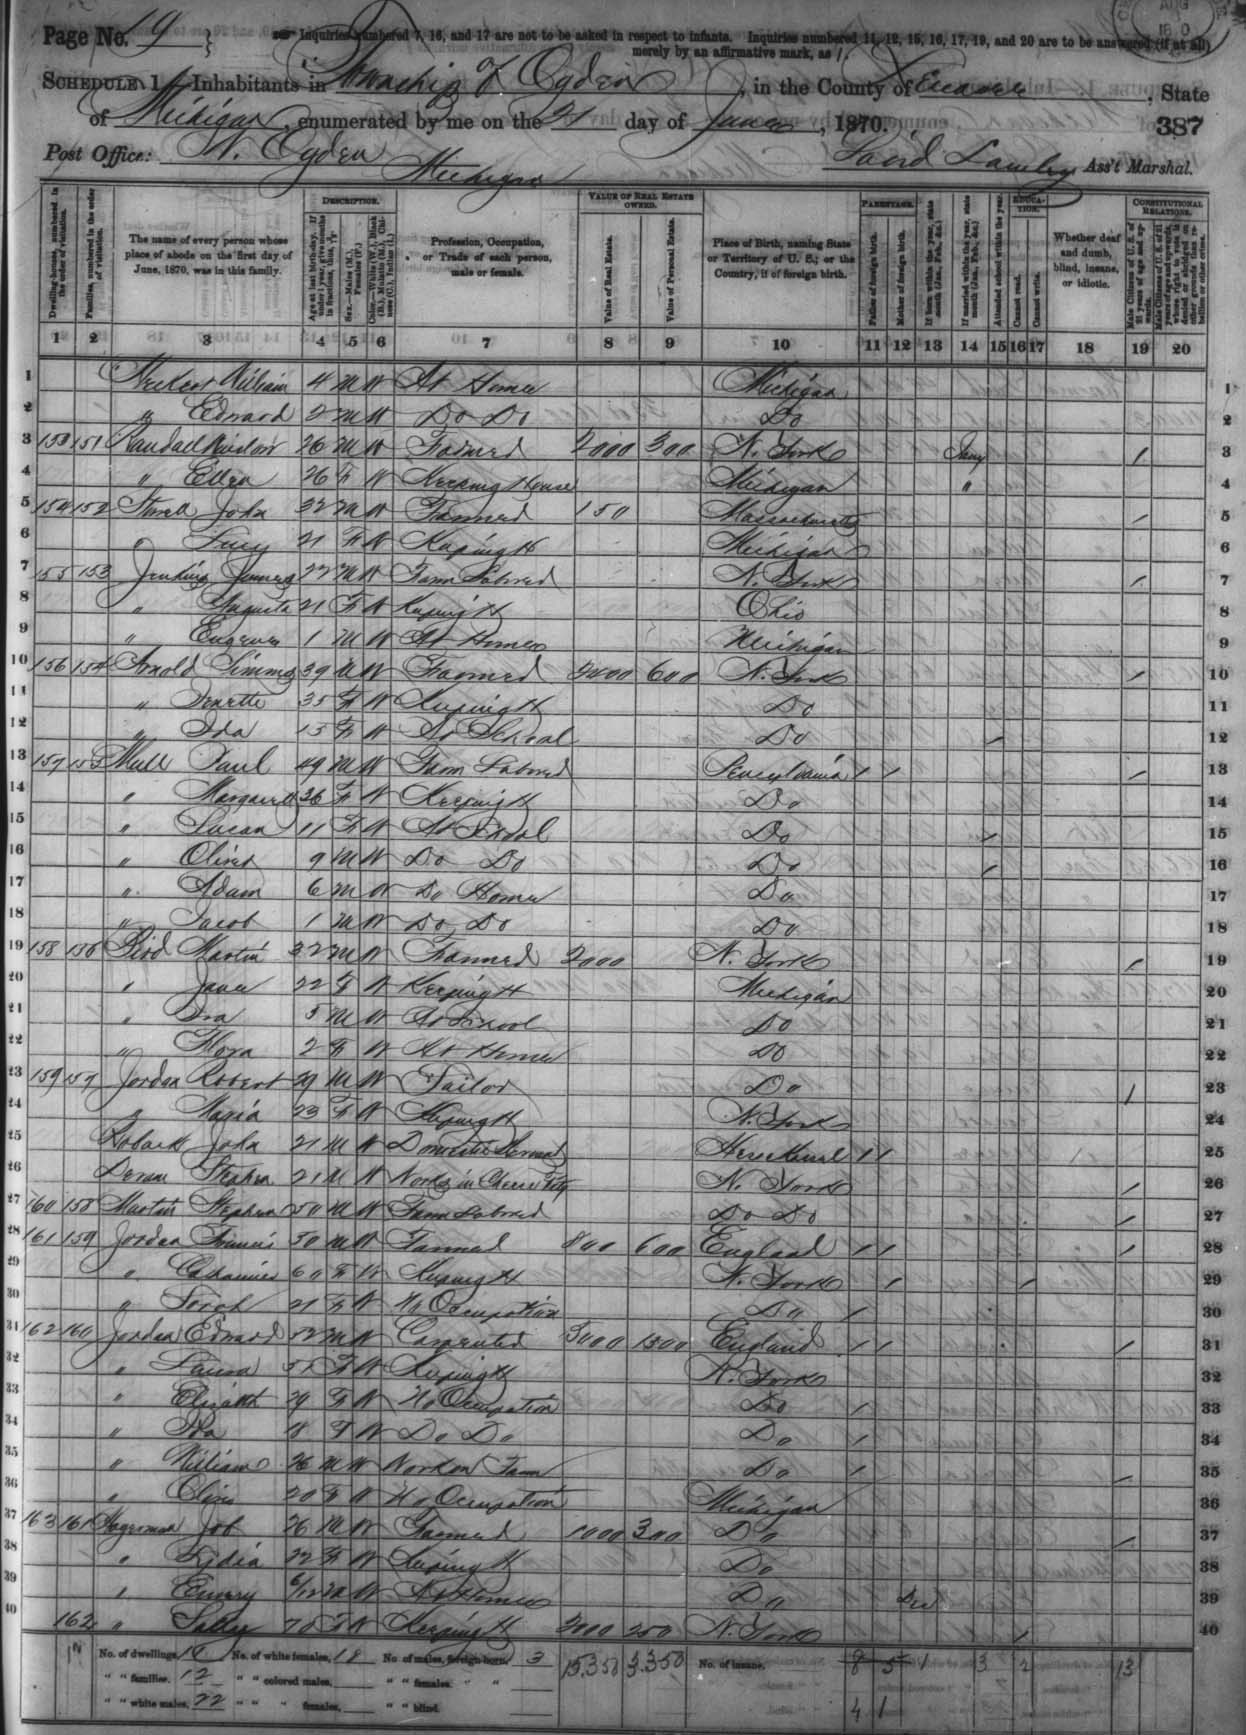 Page No. 19
Inquiries numbered 7, 16, and 17 are not to be asked in respect to infants. Inquiries numbered 11, 12, 15, 16, 17, 19, and 20 are to be answered (if at all)
merely by an affirmative mark, as /.
SCHEDULE 1.—Inhabitants in Township of Ogden, in the County of Lenawee, State
of Michigan, enumerated by me on the 21 day of June, 1870.
387
Post Office: W. Ogden Michigan
Ass't Marshal.
Dwelling-houses, numbered in the order of visitation.
Families, numbered in the order of visitation.
The name of every person whose place of abode on the first day of June, 1870, was in this family.
DESCRIPTION.
Age at last birth-day. If under 1 year, give months in fractions, thus, 3/12
Sex.—Males (M.), Females (F.)
Color.—White (W.), Black (B.), Mulatto (M.), Chinese (C.), Indian (I.)
Profession, Occupation, or Trade of each person, male or female.
VALUE OF REAL ESTATE OWNED.
Value of Real Estate.
Value of Personal Estate.
Place of Birth, naming State or Territory of U. S.; or the Country, if of foreign birth.
PARENTAGE.
Father of foreign birth.
Mother of foreign birth.
If born within the year, state month (Jan., Feb., &c.)
If married within the year, state month (Jan., Feb., &c.)
Attended school within the year.
EDUCATION.
Cannot read.
Cannot write.
Whether deaf and dumb, blind, insane, or idiotic.
CONSTITUTIONAL RELATIONS.
Male Citizens of U. S. of 21 years of age and upwards.
Male Citizens of U. S. of 21 years of age and upwards, whose right to vote is denied or abridged on other grounds than rebellion or other crime.
1 2 3 4 5 6 7 8 9 10 11 12 13 14 15 16 17 18 19 20
1 William 4 M W At Home Michigan 1
2 " Edward 2 M W Do Do Do 2
3 153 151 Randall 26 M W Farmer 2000 300 N. York Jany / 3
4 " Ellen 26 F W Keeping House Michigan " 4
5 154 152 John 32 M W Farmer 150 Massachusetts / 5
6 " Lucy 21 F W Keeping H Michigan 6
7 155 153 Jenkins James 22 M W Farm Laborer N. York / 7
8 " Augusta 21 F W Keeping H Ohio 8
9 " Eugene 1 M W At Home Michigan 9
10 156 154 Arnold 39 M W Farmer 600 N. York / 10
11 " 35 F W Keeping H Do 11
12 " Ida 13 F W At School Do / 12
13 157 155 Mull Paul 49 M W Farm Laborer Pensylvania / / / 13
14 " Margarett 36 F W Keeping H Do 14
15 " Susan 11 F W At School Do / 15
16 " Oliver 9 M W Do Do Do / 16
17 " Adam 6 M W Do Home Do 17
18 " Jacob 1 M W Do Do Do 18
19 158 156 Bird Martin 32 M W Farmer 2000 N. York / 19
20 " Jane 22 F W Keeping H Michigan 20
21 " Ira 5 M W At School Do 21
22 " Flora 2 F W At Home Do 22
23 159 157 Jordan Robert 29 M W Tailor Do / 23
24 " Maria 23 F W Keeping H N. York 24
25 John 21 M W Domestic Servant / / 25
26 Stephen 21 M W Works in Cheese Fcty N. York / 26
27 160 158 Martin Stephen 50 M W Farm Laborer Do Do / 27
28 161 159 Jordan Francis 50 M W Farmer 800 600 England / / / 28
29 " Catharine 60 F W Keeping H N. York / / 29
30 " 21 F W No Occupation Do / 30
31 162 160 Jordan Edward 52 M W Carpenter 3000 1300 England / / / 31
32 " Laura 51 F W Keeping H N. York 32
33 " Elizabeth 29 F W No Occupation Do / 33
34 " Ida 18 F W Do Do Do / 34
35 " William 26 M W Work on Farm Do / / 35
36 " Olive 20 F W No Occupation Michigan 36
37 163 161 Hagerman Job 26 M W Farmer 1000 300 Do / 37
38 " Lydia 22 F W Keeping H Do 38
39 " Emery 6/12 M W At Home Do Dec 39
40 162 " Sally 70 F W Keeping H 2000 250 N. York / 40
No. of dwellings, No. of white females, 18 No. of males, foreign born, 3 15350 3350 No. of insane, 8 5 1 3 2 13
" " families, 12 " " colored males, " " females, " "
" " white males, 22 " " " females, " " blind. 4 1